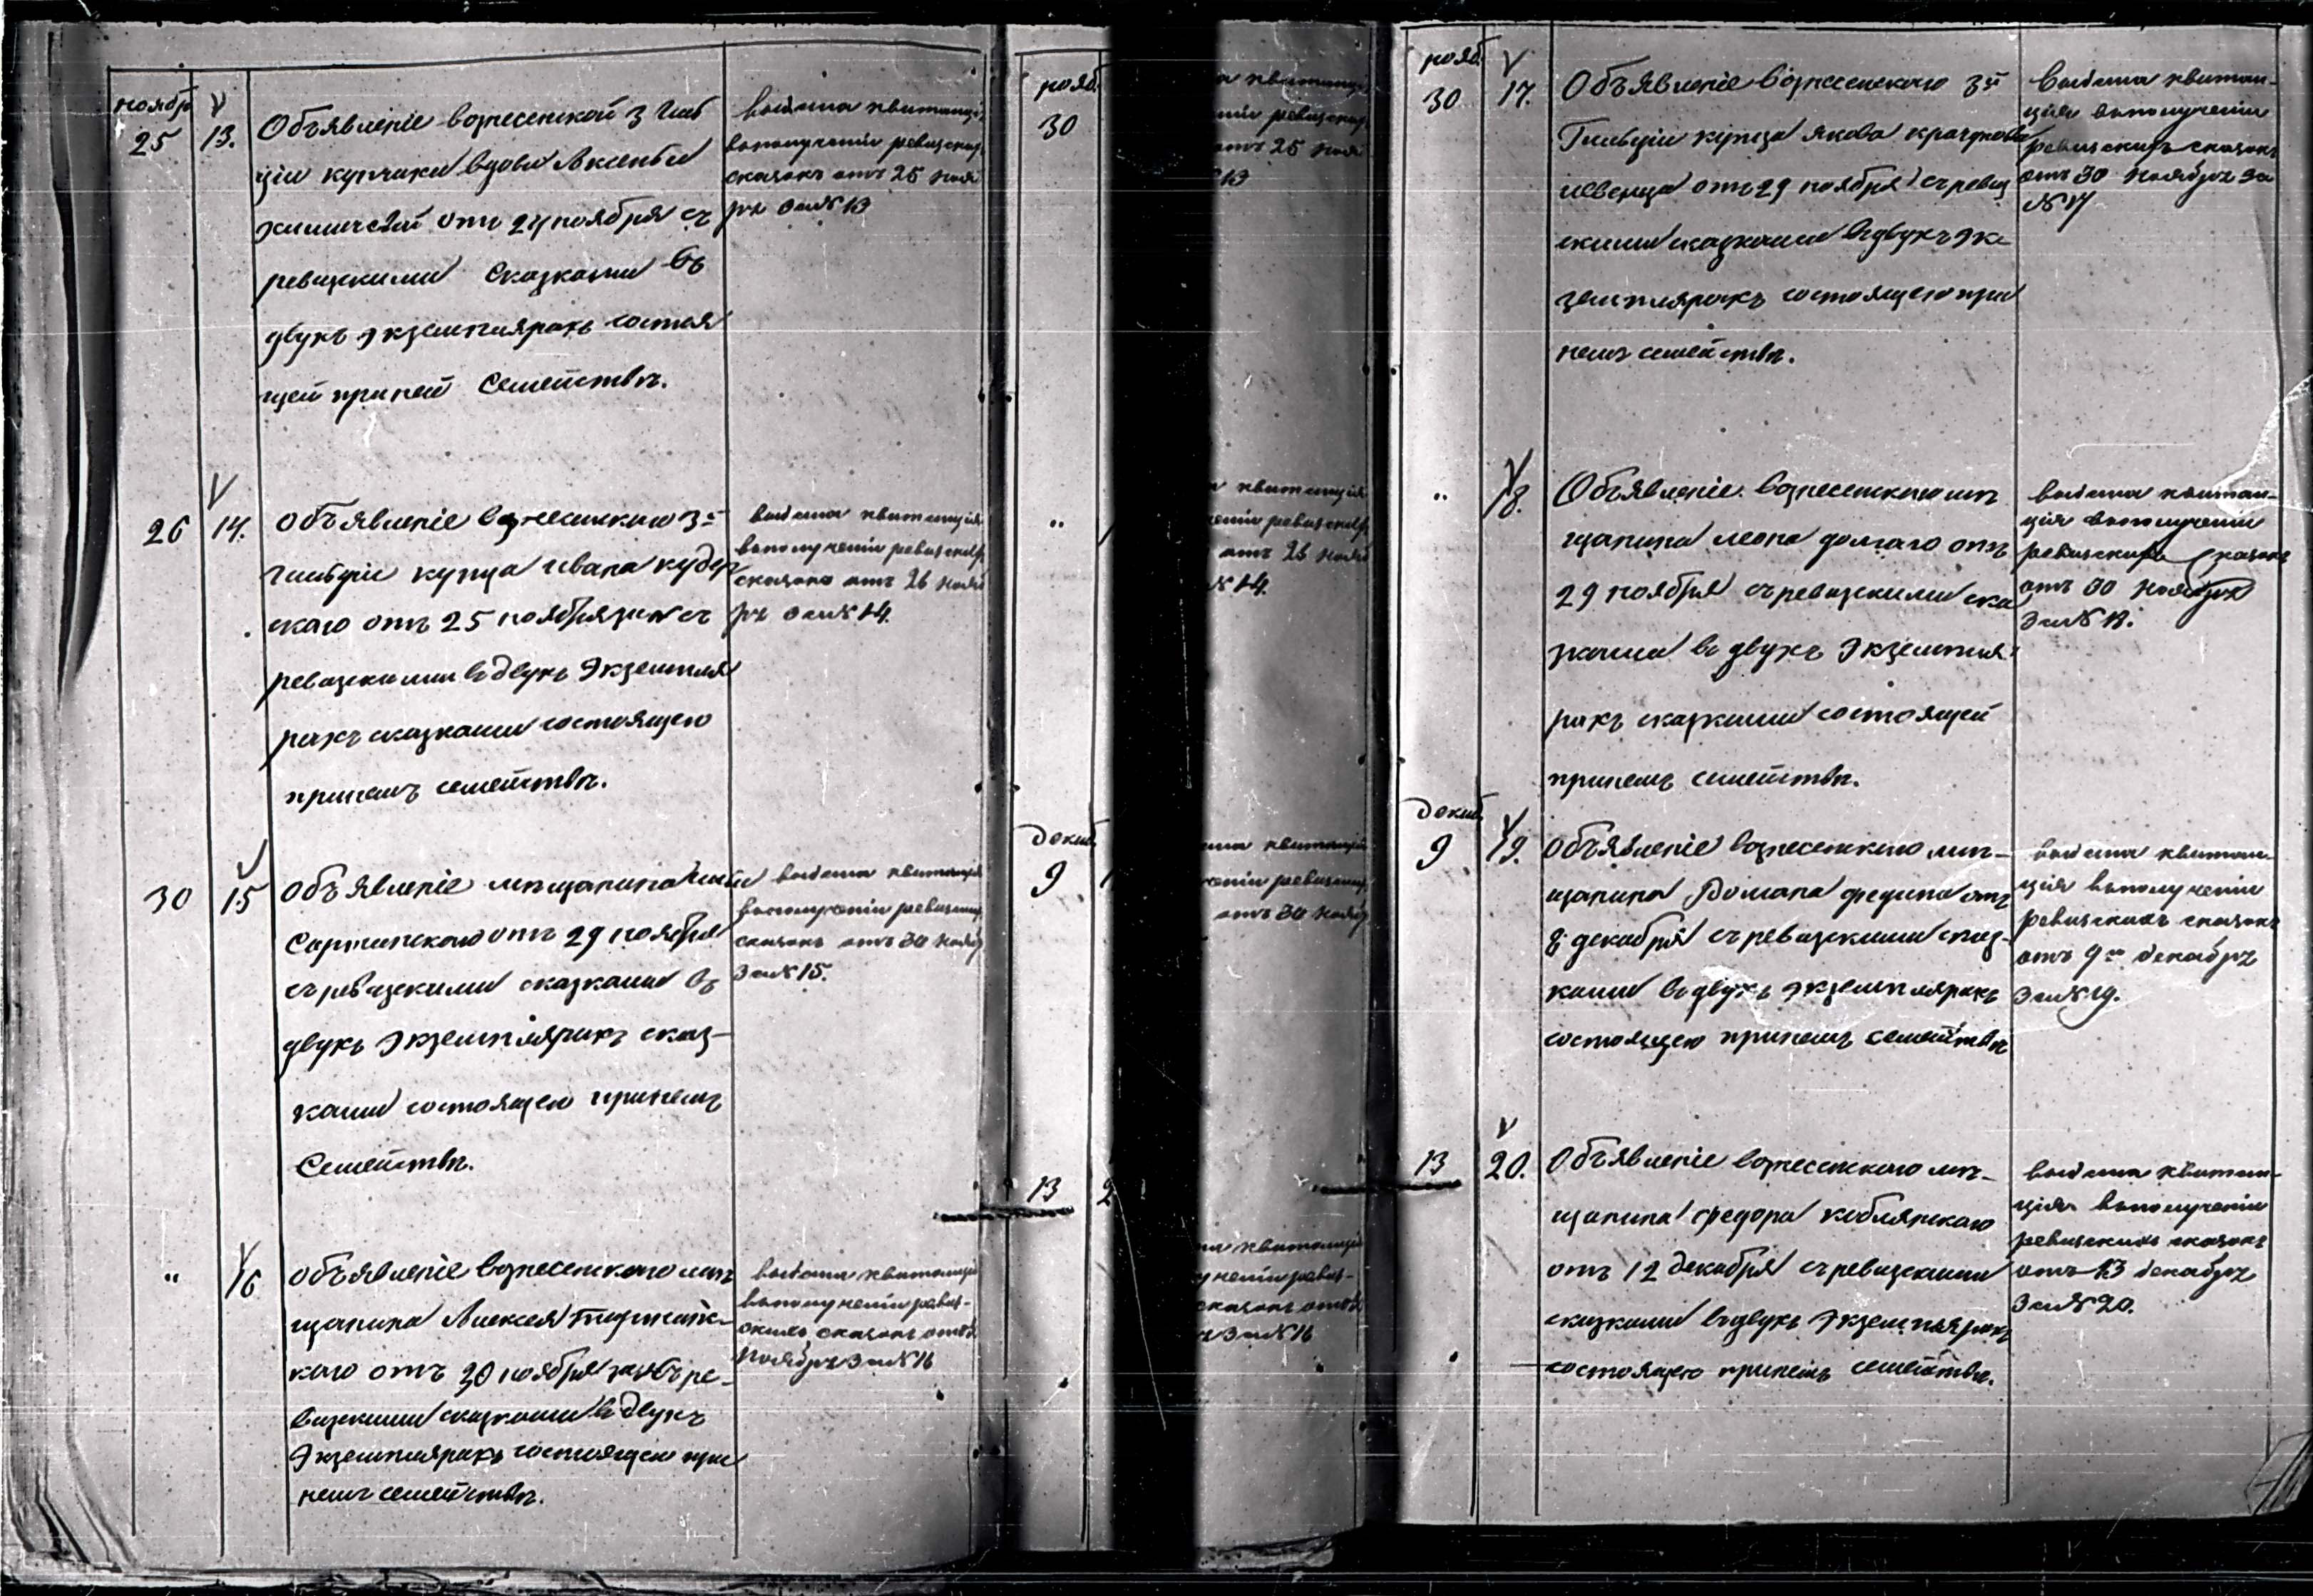 ноябр
25
13.
Объявленіе вознесенской 3 Гиль
діи купчихи вдовы
отъ 24 ноября съ
ревизскими Сказками въ
двухъ экземплярахъ состоя
щей при ней Семействѣ.
выдана квитанція
въ полученіи ревизских
сказокъ отъ 25 нояб
ря за № 13
26
14.
Объявленіе вознесенскаго 3й
Гильдіи купца Ивана
скаго отъ 25 ноября съ
ревизскими въ двухъ Экземпля
рахъ сказками состоящего
при немъ семействѣ.
выдана квитанція
въ полученіи ревизских
сказокъ отъ 26 нояб
ря за № 14.
30
15
Объявленіе мѣщанина
отъ 29 ноября
съ ревизскими сказками въ
двухъ Экземплярахъ сказ-
ками состоящего при немъ
Семействѣ.
выдана квитанція
въ полученіи ревизских
сказокъ отъ 30 нояб
За № 15.
"
16
Объявленіе вознесенскаго мѣ
щанина Алексея
каго отъ 30 ноября съ ре-
визскими сказками въ двухъ
Экземплярахъ состоящего при
немъ семействѣ.
выдана квитанція
въ полученіи ревиз-
скихъ сказокъ отъ
ноября За № 16
нояб.
30
"
декаб.
9
13
нояб.
30
17.
Объявленіе вознесенскаго 3й
Гильдіи купца Якова
отъ 29 ноября съ ревиз
скими сказками въ двухъ эк
земплярахъ состоящего при
немъ семействѣ.
выдана квитан-
ція въ полученіи
ревизскихъ сказокъ
отъ 30 ноября за
№ 17
"
18.
Объявленіе вознесенскаго мѣ
щанина Леона Долгаго отъ
29 ноября съ ревизскими ска
зками въ двухъ Экземпля
рахъ сказками состоящей
при немъ семействѣ.
выдана квитан-
ція въ полученіи
ревизскихъ сказокъ
отъ 30 ноября
За № 18.
декаб.
9
19.
Объявленіе вознесенскаго мѣ-
щанина Романа Федина отъ
8 декабря съ ревизскими сказ-
ками въ двухъ экземплярахъ
состоящего при немъ семействѣ
выдана квитан-
ція въ полученіи
ревизскихъ сказокъ
отъ 9го декабря
За № 19.
13
20.
Объявленіе вознесенскаго мѣ-
щанина Федора Коблянскаго
отъ 12 декабря съ ревизскими
сказками въ двухъ Экземплярахъ
состоящего при немъ семействѣ.
выдана квитан-
ція въ полученіи
ревизскихъ сказокъ
отъ 13 декабря
За № 20.